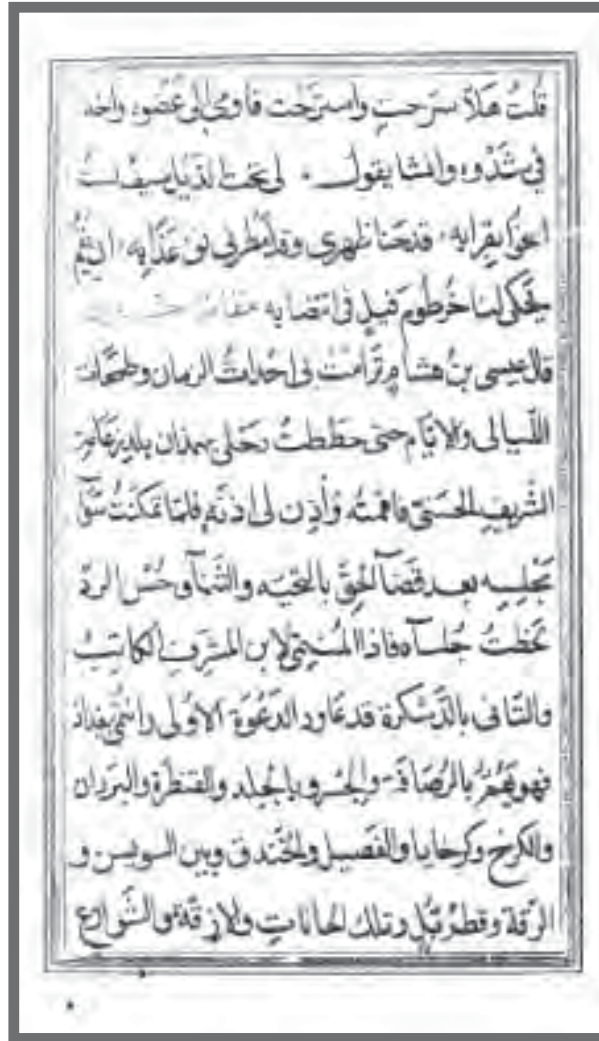 قُلتُ هَلاّ سرّحتِ واسترَحْت فاومى الى عُضوه واخذ
فى شَدْوِه وانشا يقول لى تحت الذيل سيف لست
بقرابه قد حنا ظهرى وقد افى عَذابِه
يحكى لنا خُرطوم فيلٍ فى انتصابه
قال عيسى بنُ هشامٍ ترامَتْ بى احْداثُ الزمان وطمحات
اللّيالى والايّام حتى حططتُ رحلى بهمذان
الشّريفِ الحسَنىّ وأُذِن لى فلمّا تمكنتُ
مجْلِسِه بعد قضآ الحقّ بالتحيّه والثنآ وحُسْن الردّ
لحظتُ جُلسآه فاذا لابن المشرَف الكاتبُ
والثانى بالدّسْكرة قد عاود الدعْوَة الاوُلى ببغداذ
فهو بالرُّصَافة والجسْر وبالجُلد والقنطَرة والبردان
والكرخ وكرخايا والفَصيل والخندق وبين السورين و
الرّقة وقطرُبُّل وتلك الحاناتِ والازقّة والشَّوارع